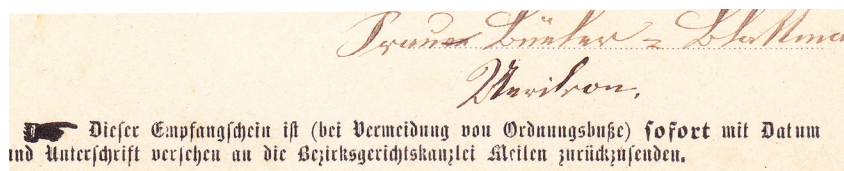 Frau Büeler - Blattma
Uerikon.
Dieser Empfangschein ist (bei Vermeidung von Ordnungsbuße) sofort mit Datum
und Unterschrift versehen an die Bezirksgerichtskanzlei Meilen zurückzusenden.